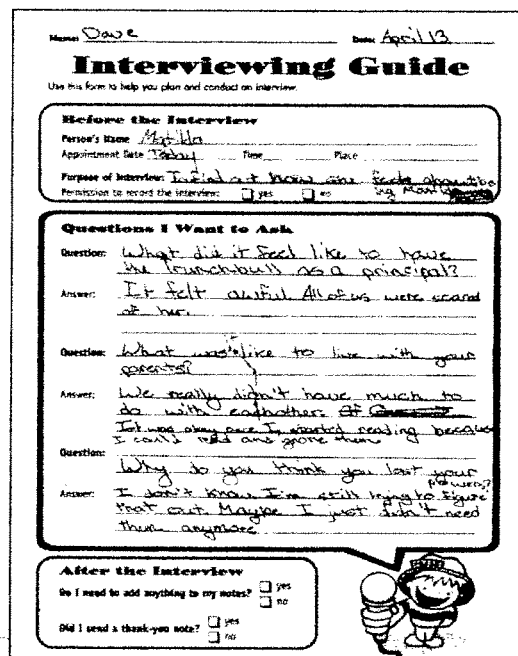 Name: Dave Date: April 13
Interviewing Guide
Use this form to help you plan and conduct an interview.
Before the Interview
Person's Name Matilda
Appointment Date Today Time Place
Purpose of Interview: To find out how she feels about
Permission to record the interview: yes no
Questions I Want to Ask
Question: What did it feel like to have
the trunchbull as a principal?
Answer: It felt awful All of us were scared
of her.
Question: What was it like to live with your
parents?
Answer: We really didn't have much to
do with eachothers
It was okay once I started reading because
I could read and ignore them
Question:
Why do you think you lost your
powers?
Answer: I don't know I'm still trying to figure
that out Maybe I just didn't need
them anymore
After the Interview
Do I need to add anything to my notes? yes
no
Did I send a thank-you note? yes
no